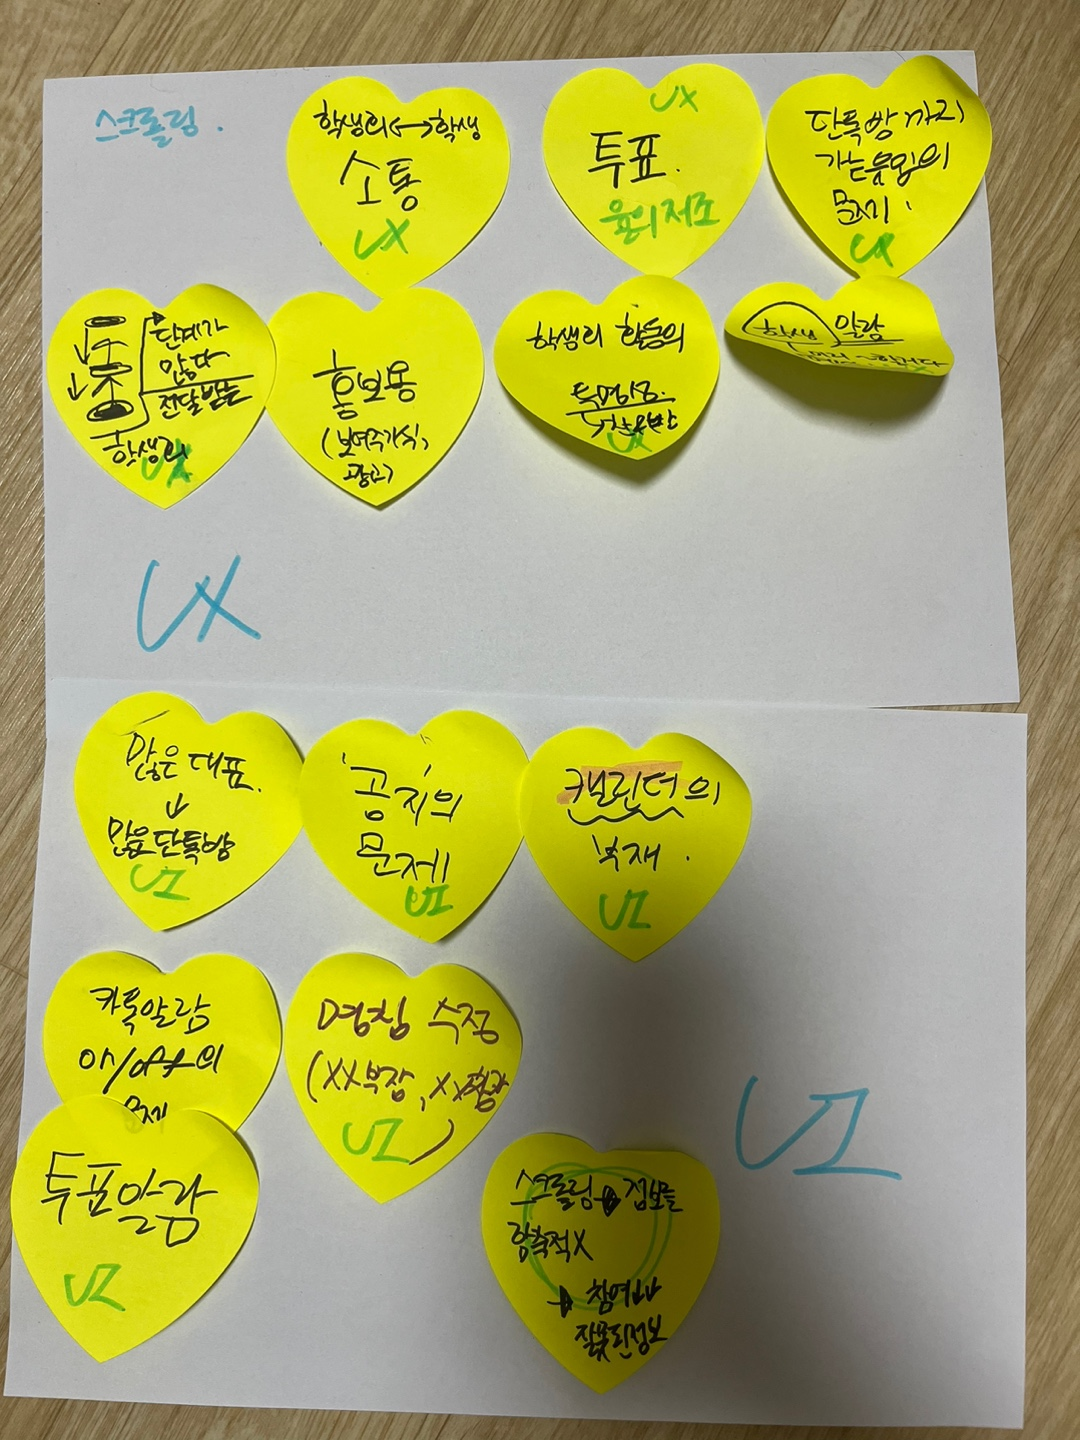 스크롤링.
학생회↔학생
소통
UX
UX
투표.
율의 저조
단톡방까지
가는 유입의
문제.
UX
단계가
많다
전달받는
학생회
UX
홍보용
(보여주기식,
광고)
학생회 활동의
투명성.
UX
학생 알람
UX
많은 대표.
↓
많은 단톡방
UI
'공지'의
문제
UI
캘린더의
부재.
UI
카톡알람
의
문제
투표알람
UI
명칭 수정
(XX부장, XX회장)
UI
스크롤링→정보를
함축적X
→참여↓↓
잘못된정보
UI